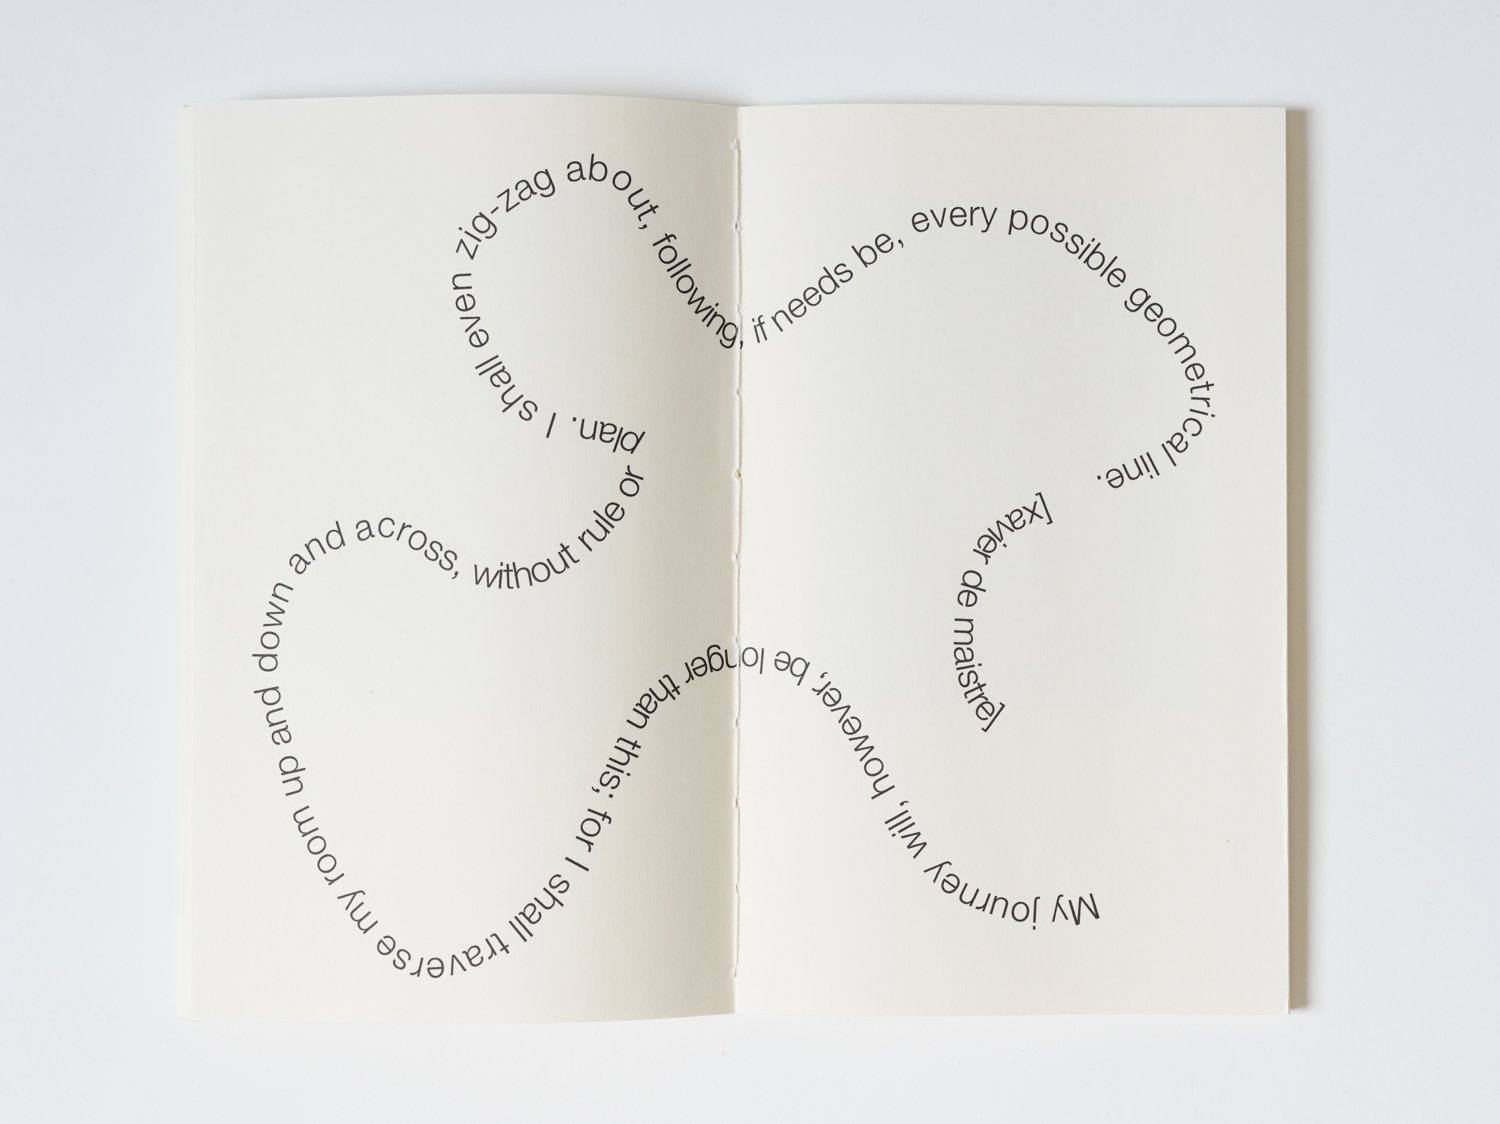 My journey will, however, be longer than this; for I shall traverse my room up and down and across, without rule or plan. I shall even zig-zag about, following, if needs be, every possible geometrical line.
[xavier de maistre]